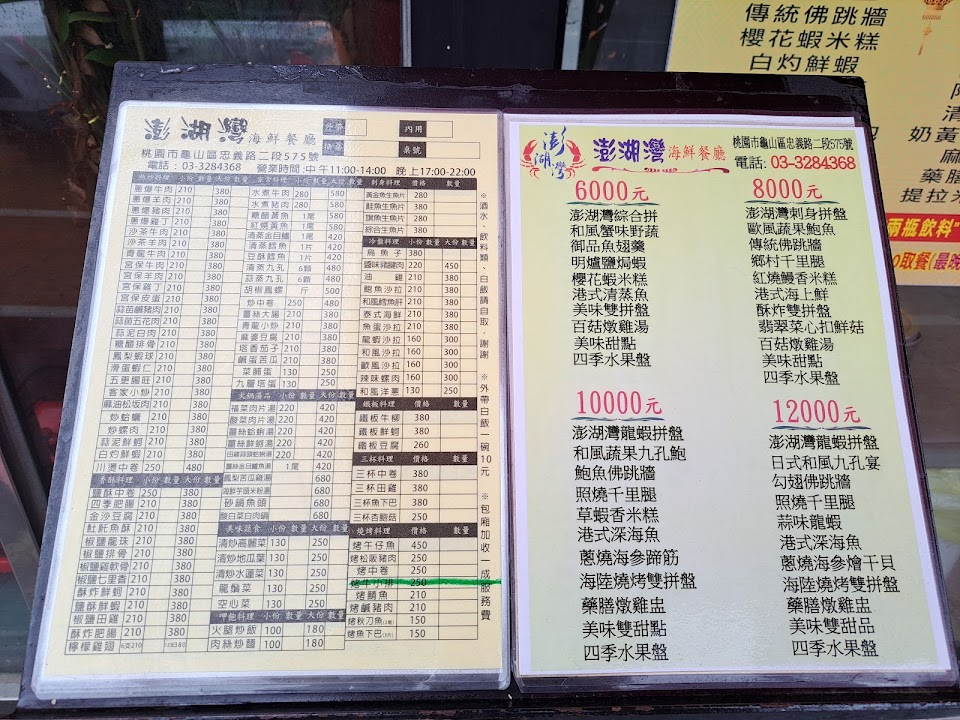 傳統佛跳牆
櫻花蝦米糕
白灼鮮蝦
麻
清
奶黃
藥
提拉米
兩瓶飲料"
取餐(最晚
澎湖灣 海鮮餐廳
外帶
內用
桌號
桃園市龜山區忠義路二段575號
電話:03-3284368 營業時間:中午11:00-14:00 晚上17:00-22:00
熱炒料理 小份 數量 大份 數量
蔥爆牛肉 210 380
蔥爆羊肉 210 380
蔥爆豬肉 210 380
蔥爆雞丁 210 380
沙茶牛肉 210 380
沙茶羊肉 210 380
青龍牛肉 210 380
宮保牛肉 210 380
宮保羊肉 210 380
宮保雞丁 210 380
宮保皮蛋 210 380
蒜苗鹹豬肉 210 380
蒜苗五花肉 210 380
蒜泥白肉 210 380
糖醋排骨 210 380
鳳梨蝦球 210 380
滑蛋蝦仁 210 380
五更腸旺 210 380
客家小炒 210 380
麻油松坂肉 210 380
炒蛤蠣 210 380
炒螺肉 210 380
蒜泥鮮蚵 210 380
白灼鮮蝦 210 380
川燙中卷 250 480
香酥料理 小份 數量 大份 數量
鹽酥中卷 250 380
四季肥腸 210 380
金沙豆腐 210 380
𩵚魠魚酥 210 380
椒鹽龍珠 210 380
椒鹽排骨 210 380
椒鹽雞軟骨 210 380
椒鹽七里香 210 380
酥炸鮮蚵 210 380
鹽酥鮮蝦 210 380
椒鹽田雞 210 380
酥炸肥腸 210 380
檸檬雞翅 6支210 12支380
水煮牛肉 280 580
水煮豬肉 280 580
糖醋黃魚 1尾 580
紅燒黃魚 1尾 580
清蒸金目鱸 1尾 420
清蒸鱈魚 1片 420
豆酥鱈魚 1片 420
清蒸九孔 6顆 480
蒜蒸九孔 6顆 480
胡椒鳳螺 500
炒中卷 250 480
薑絲大腸 210 380
青龍小炒 210 380
麻婆豆腐 210 380
塔香茄子 210 380
鹹蛋苦瓜 210 380
菜脯蛋 130 250
九層塔蛋 130 250
火鍋湯品 小份 數量 大份 數量
福菜肉片湯 220 420
酸菜肉片湯 220 420
薑絲蛤蜊湯 220 420
薑絲鮮蚵湯 220 420
田雞蒜頭蛤蜊湯 220 420
薑絲金目鱸魚湯 1尾 420
鳳梨苦瓜雞湯 680
海鮮芋頭米粉湯 680
砂鍋魚頭 680
酸白菜白肉鍋 680
美味蔬食 小份 數量 大份 數量
清炒高麗菜 130 250
清炒地瓜葉 130 250
清炒水蓮菜 130 250
龍鬚菜 130 250
空心菜 130 250
呷飽料理 小份 數量 大份 數量
火腿炒飯 100 180
肉絲炒麵 100 180
刺身料理 價格 數量
黃金魚生魚片 280
鮭魚生魚片 280
旗魚生魚片 280
綜合生魚片 380
冷盤料理 小份 數量 大份 數量
烏魚子 380
鹽味豬腱肉 220 450
油雞 210 380
鮑魚沙拉 210 380
和風鱈魚肝 210 380
泰式海鮮 210 380
魚蛋沙拉 210 380
龍蝦沙拉 160 300
和風沙拉 160 300
歐風沙拉 160 300
辣味螺肉 160 300
和風洋蔥 130 250
鐵板料理 價格 數量
鐵板牛柳 380
鐵板鮮蚵 380
鐵板豆腐 260
三杯料理 價格 數量
三杯中卷 380
三杯田雞 380
三杯魚下巴 380
三杯杏鮑菇 250
燒烤料理 價格 數量
烤牛仔魚 450
烤松阪豬肉 250
烤中卷 250
烤牛小排 250
烤鯖魚 210
烤鹹豬肉 210
烤秋刀魚(2尾) 150
烤魚下巴(1片) 150
※酒水、飲料類、白飯請自取,謝謝 ※外帶白飯一碗10元 ※包廂加收一成服務費
澎湖灣
澎湖灣 海鮮餐廳
桃園市龜山區忠義路二段575號
電話:03-3284368
6000元
澎湖灣綜合拼
和風蟹味野蔬
御品魚翅羹
明爐鹽焗蝦
櫻花蝦米糕
港式清蒸魚
美味雙拼盤
百菇燉雞湯
美味甜點
四季水果盤
8000元
澎湖灣刺身拼盤
歐風蔬果鮑魚
傳統佛跳牆
鄉村千里腿
紅燒鰻香米糕
港式海上鮮
酥炸雙拼盤
翡翠菜心扣鮮菇
百菇燉雞湯
美味甜點
四季水果盤
10000元
澎湖灣龍蝦拼盤
和風蔬果九孔鮑
鮑魚佛跳牆
照燒千里腿
草蝦香米糕
港式深海魚
蔥燒海參蹄筋
海陸燒烤雙拼盤
藥膳燉雞盅
美味雙甜點
四季水果盤
12000元
澎湖灣龍蝦拼盤
日式和風九孔宴
勾翅佛跳牆
照燒千里腿
蒜味龍蝦
港式深海魚
蔥燒海參燴干貝
海陸燒烤雙拼盤
藥膳燉雞盅
美味雙甜品
四季水果盤